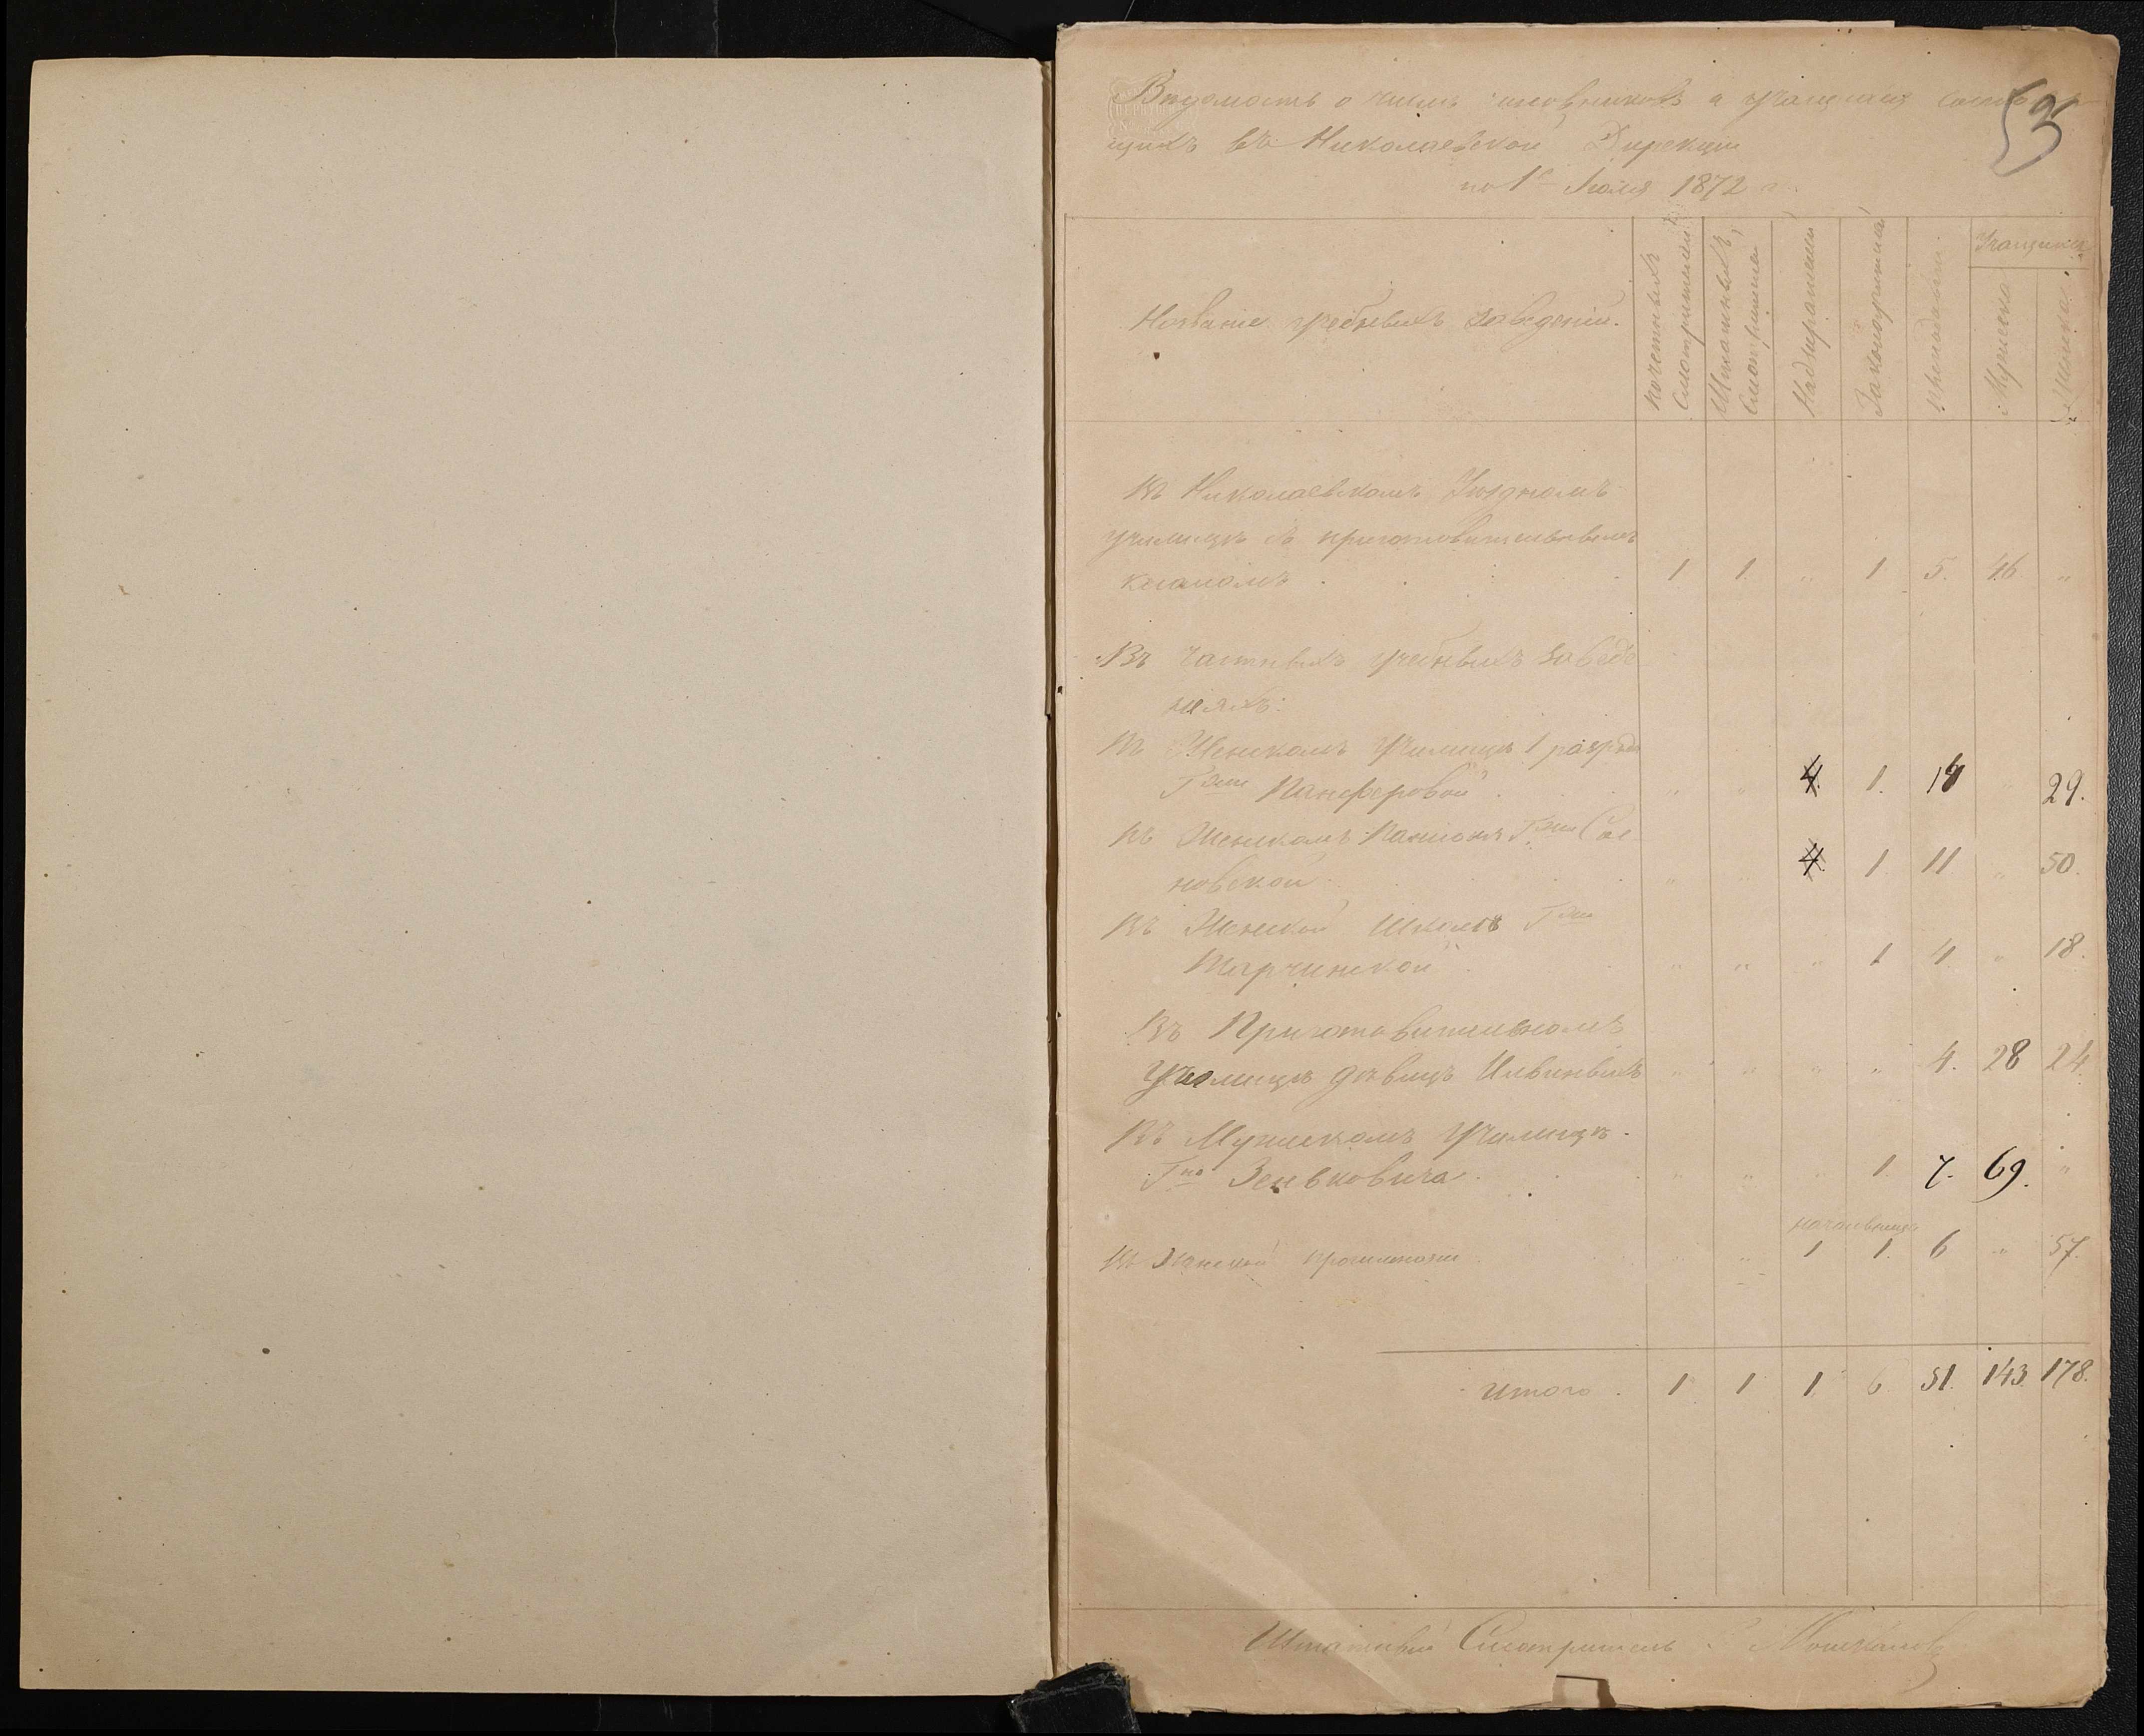 53
Ведомость о числе чиновниковъ и учащихся состоя-
щихъ въ Николаевской Дирекціи
по 1е Іюля 1872 г.
Названіе учебныхъ заведеній.
Почетныхъ Смотрителей
Штатныхъ Смотрителей
Надзирателей
Законоучителей
Преподавателей
Учащихся
Мужеска
Женска
Въ Николаевскомъ Уѣздномъ
училищѣ съ приготовительнымъ
классомъ . 1 1. „ 1 5. 46 „
Въ частныхъ учебныхъ заведе
ніяхъ:
Въ Женскомъ Училищѣ 1 разряда
Гжи Панферовой . „ „ 4. 1. 14 „ 29.
Въ Женскомъ Пансіонѣ Гжи Сос
новской „ „ 4. 1 11 „ 50.
Въ Женской Школѣ Гжи
Марчинской „ „ „ 1 4 „ 18.
Въ Приготовительномъ
Училищѣ дѣвицъ Ильиныхъ „ „ „ „ 4. 28 24.
Въ Мужскомъ Училищѣ
Гна Зеньковича . „ „ „ 1. 7. 69. „
начальница
Въ Женской прогимназіи „ „ 1 1. 6 „ 57.
Итого . 1 1 1 6 51. 143. 178.
Штатный Смотритель